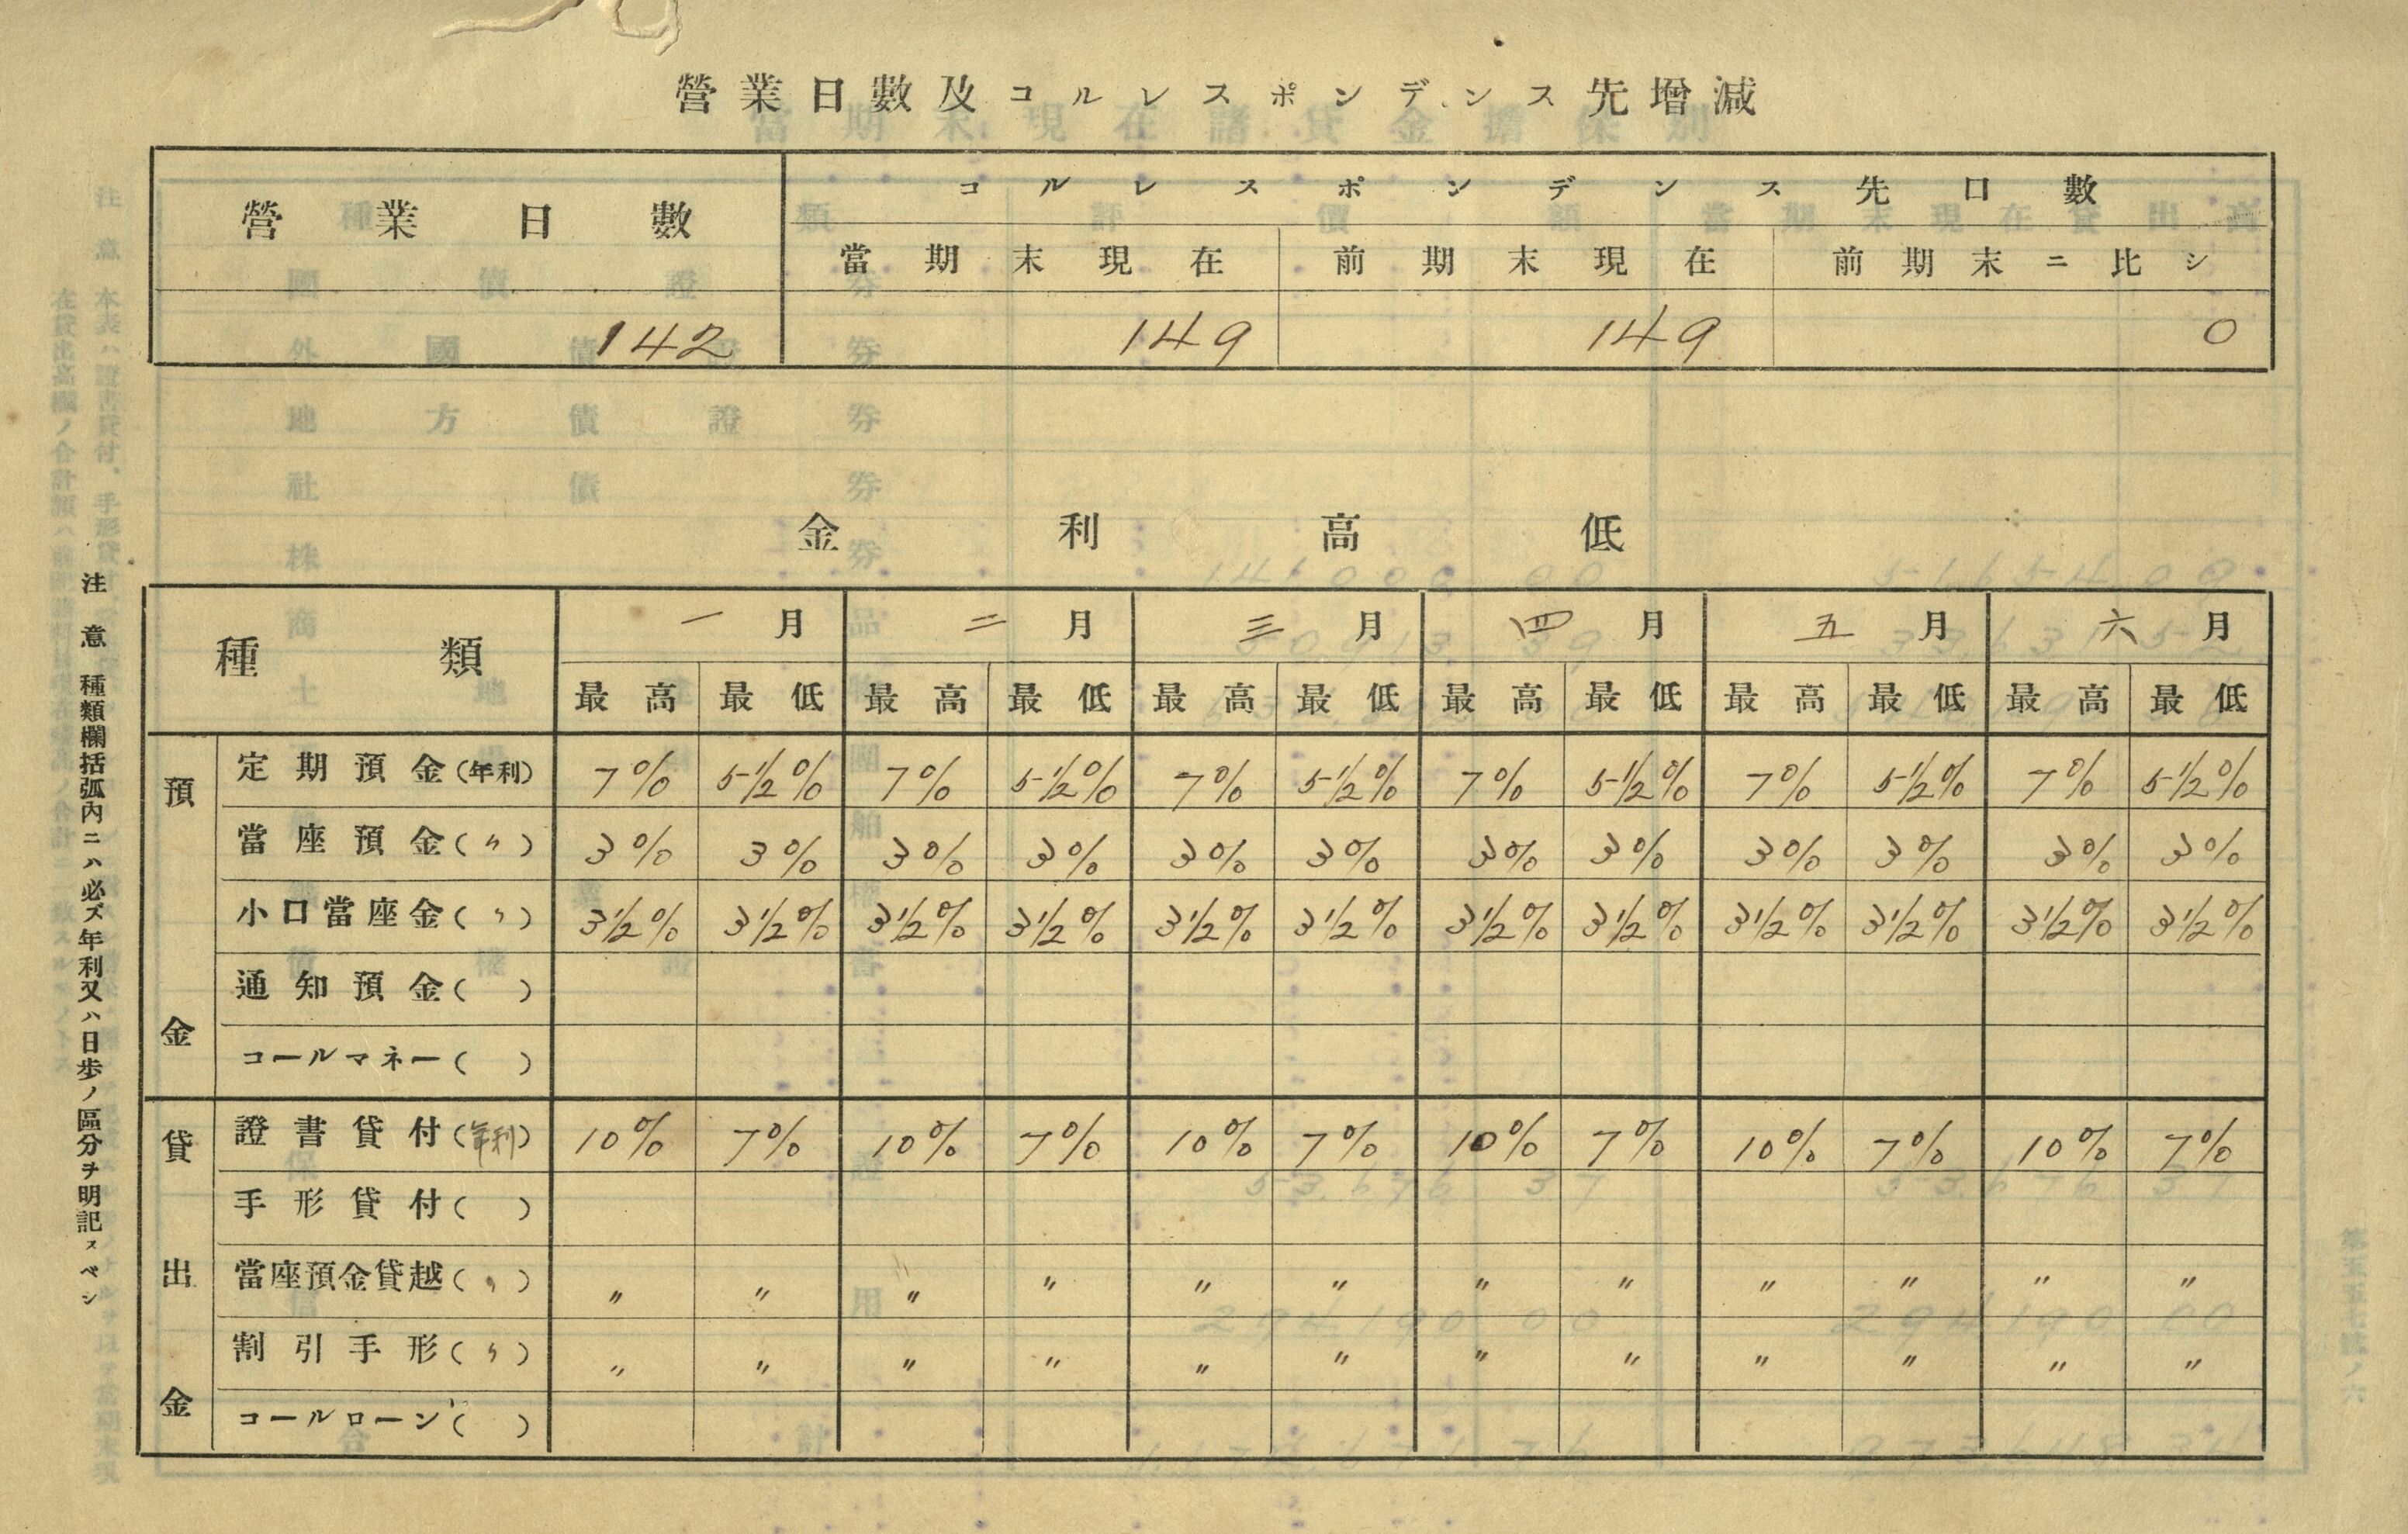 營業日數及コルレスポンデンス先增減
營業日數 コルレスポンデンス先口數
當期末現在 前期末現在 前期末ニ比シ
142 149 149 0
金利高低
種類 一月 二月 三月 四月 五月 六月
最高 最低 最高 最低 最高 最低 最高 最低 最高 最低 最高 最低
預金
定期預金(年利) 7% 5-1/2% 7% 5-1/2% 7% 5-1/2% 7% 5-1/2% 7% 5-1/2% 7% 5-1/2%
當座預金(〃) 3% 3% 3% 3% 3% 3% 3% 3% 3% 3% 3% 3%
小口當座金(〃) 3 1/2% 3 1/2% 3 1/2% 3 1/2% 3 1/2% 3 1/2% 3 1/2% 3 1/2% 3 1/2% 3 1/2% 3 1/2% 3 1/2%
通知預金( )
コールマネー( )
貸出金
證書貸付(年利) 10% 7% 10% 7% 10% 7% 10% 7% 10% 7% 10% 7%
手形貸付( )
當座預金貸越(〃) 〃 〃 〃 〃 〃 〃 〃 〃 〃 〃 〃 〃
割引手形(〃) 〃 〃 〃 〃 〃 〃 〃 〃 〃 〃 〃 〃
コールローン( )
注意 種類欄括弧內ニハ必ズ年利又ハ日步ノ區分ヲ明記スベシ